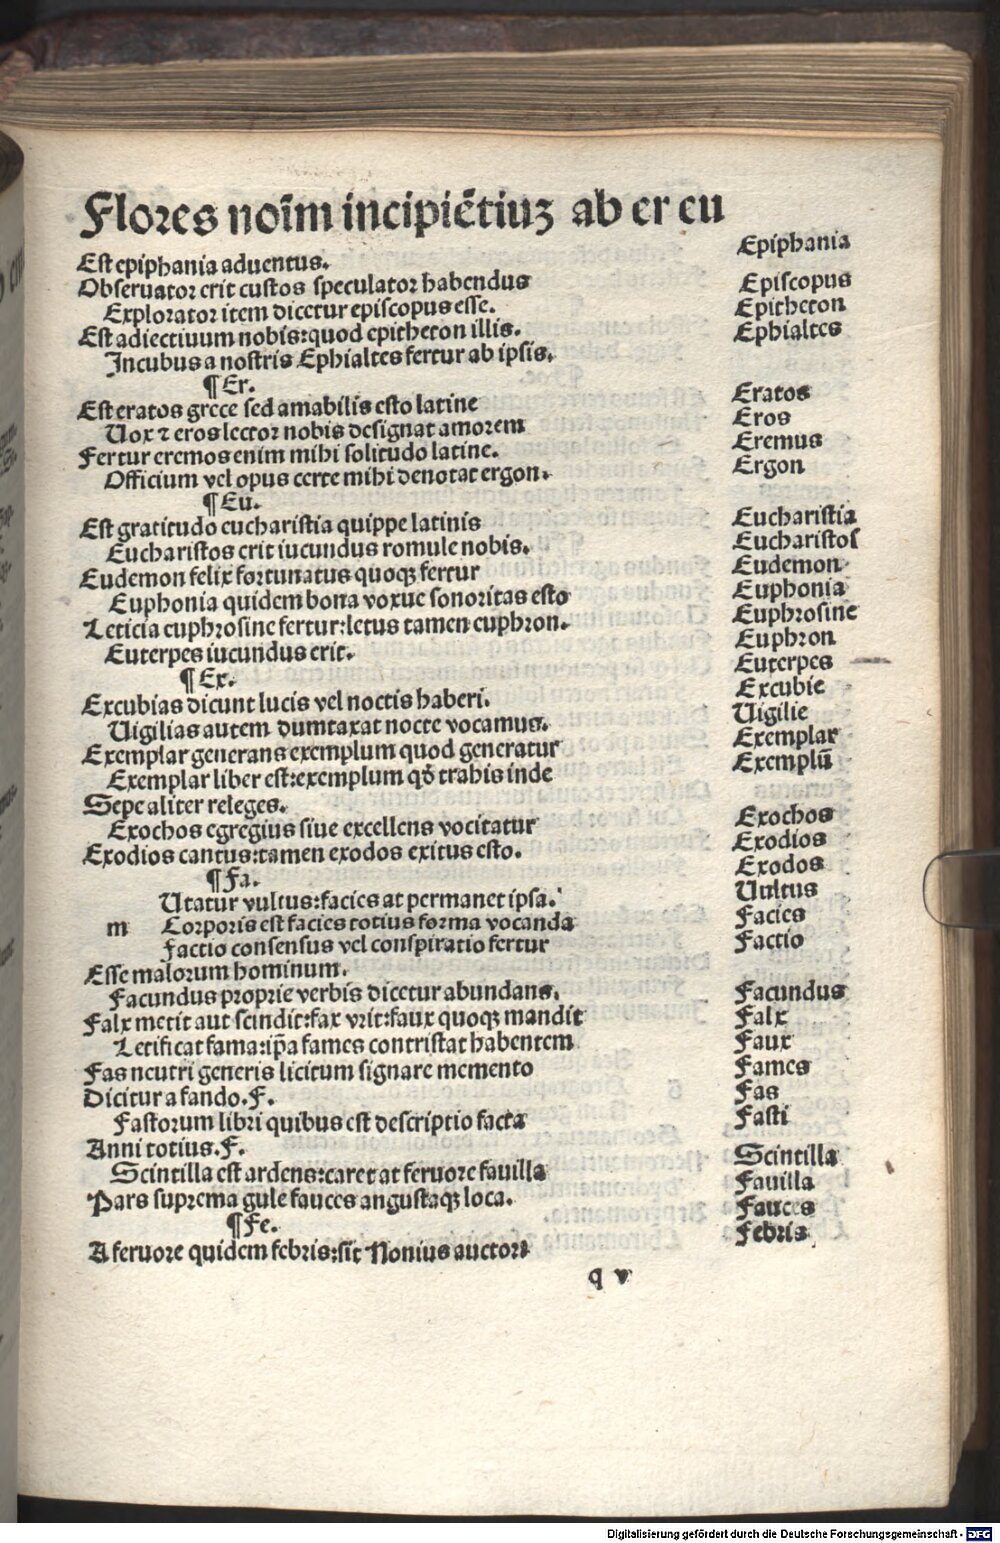 Flores noīm incipiētiuꝫ ab er eu
Est epiphania aduentus. Epiphania
Obseruator erit custos speculator habendus Episcopus
Explorator item dicetur episcopus esse. Epitheton
Est adiectiuum nobis:quod epitheton illis. Ephialtes
Incubus a nostris Ephialtes fertur ab ipsis.
¶ Er.
Est eratos grece sed amabilis esto latine Eratos
Uox ⁊ eros lector nobis designat amorem Eros
Fertur eremos enim mihi solitudo latine. Eremus
Officium vel opus certe mihi denotat ergon. Ergon
¶ Eu.
Est gratitudo eucharistia quippe latinis Eucharistia
Eucharistos erit iucundus romule nobis. Eucharistos
Eudemon felix fortunatus quoqꝫ fertur Eudemon
Euphonia quidem bona voxue sonoritas esto Euphonia
Leticia euphrosine fertur:letus tamen euphron. Euphrosine
Euterpes iucundus erit. Euphron
¶ Ex. Euterpes
Excubias dicunt lucis vel noctis haberi. Excubie
Uigilias autem dumtaxat nocte vocamus. Uigilie
Exemplar generans exemplum quod generatur Exemplar
Exemplar liber est:exemplum qđ trahis inde Exemplū
Sepe aliter releges.
Exochos egregius siue excellens vocitatur Exochos
Exodios cantus:tamen exodos exitus esto. Exodios
¶ Fa. Exodos
Utatur vultus:facies at permanet ipsa. Uultus
m Corporis est facies totius forma vocanda Facies
Factio consensus vel conspiratio fertur Factio
Esse malorum hominum.
Facundus proprie verbis dicetur abundans. Facundus
Falx metit aut scindit:fax vrit:faux quoqꝫ mandit Falx
Letificat fama:ip̄a fames contristat habentem Faux
Fas neutri generis licitum signare memento Fames
Dicitur a fando. F. Fas
Fastorum libri quibus est descriptio facta Fasti
Anni totius. F.
Scintilla est ardens:caret at feruore fauilla Scintilla
Pars suprema gule fauces angustaqꝫ loca. Fauilla
¶ Fe. Fauces
A feruore quidem febris:sit Nonius auctor Febris
q v
Digitalisierung gefördert durch die Deutsche Forschungsgemeinschaft - DFG